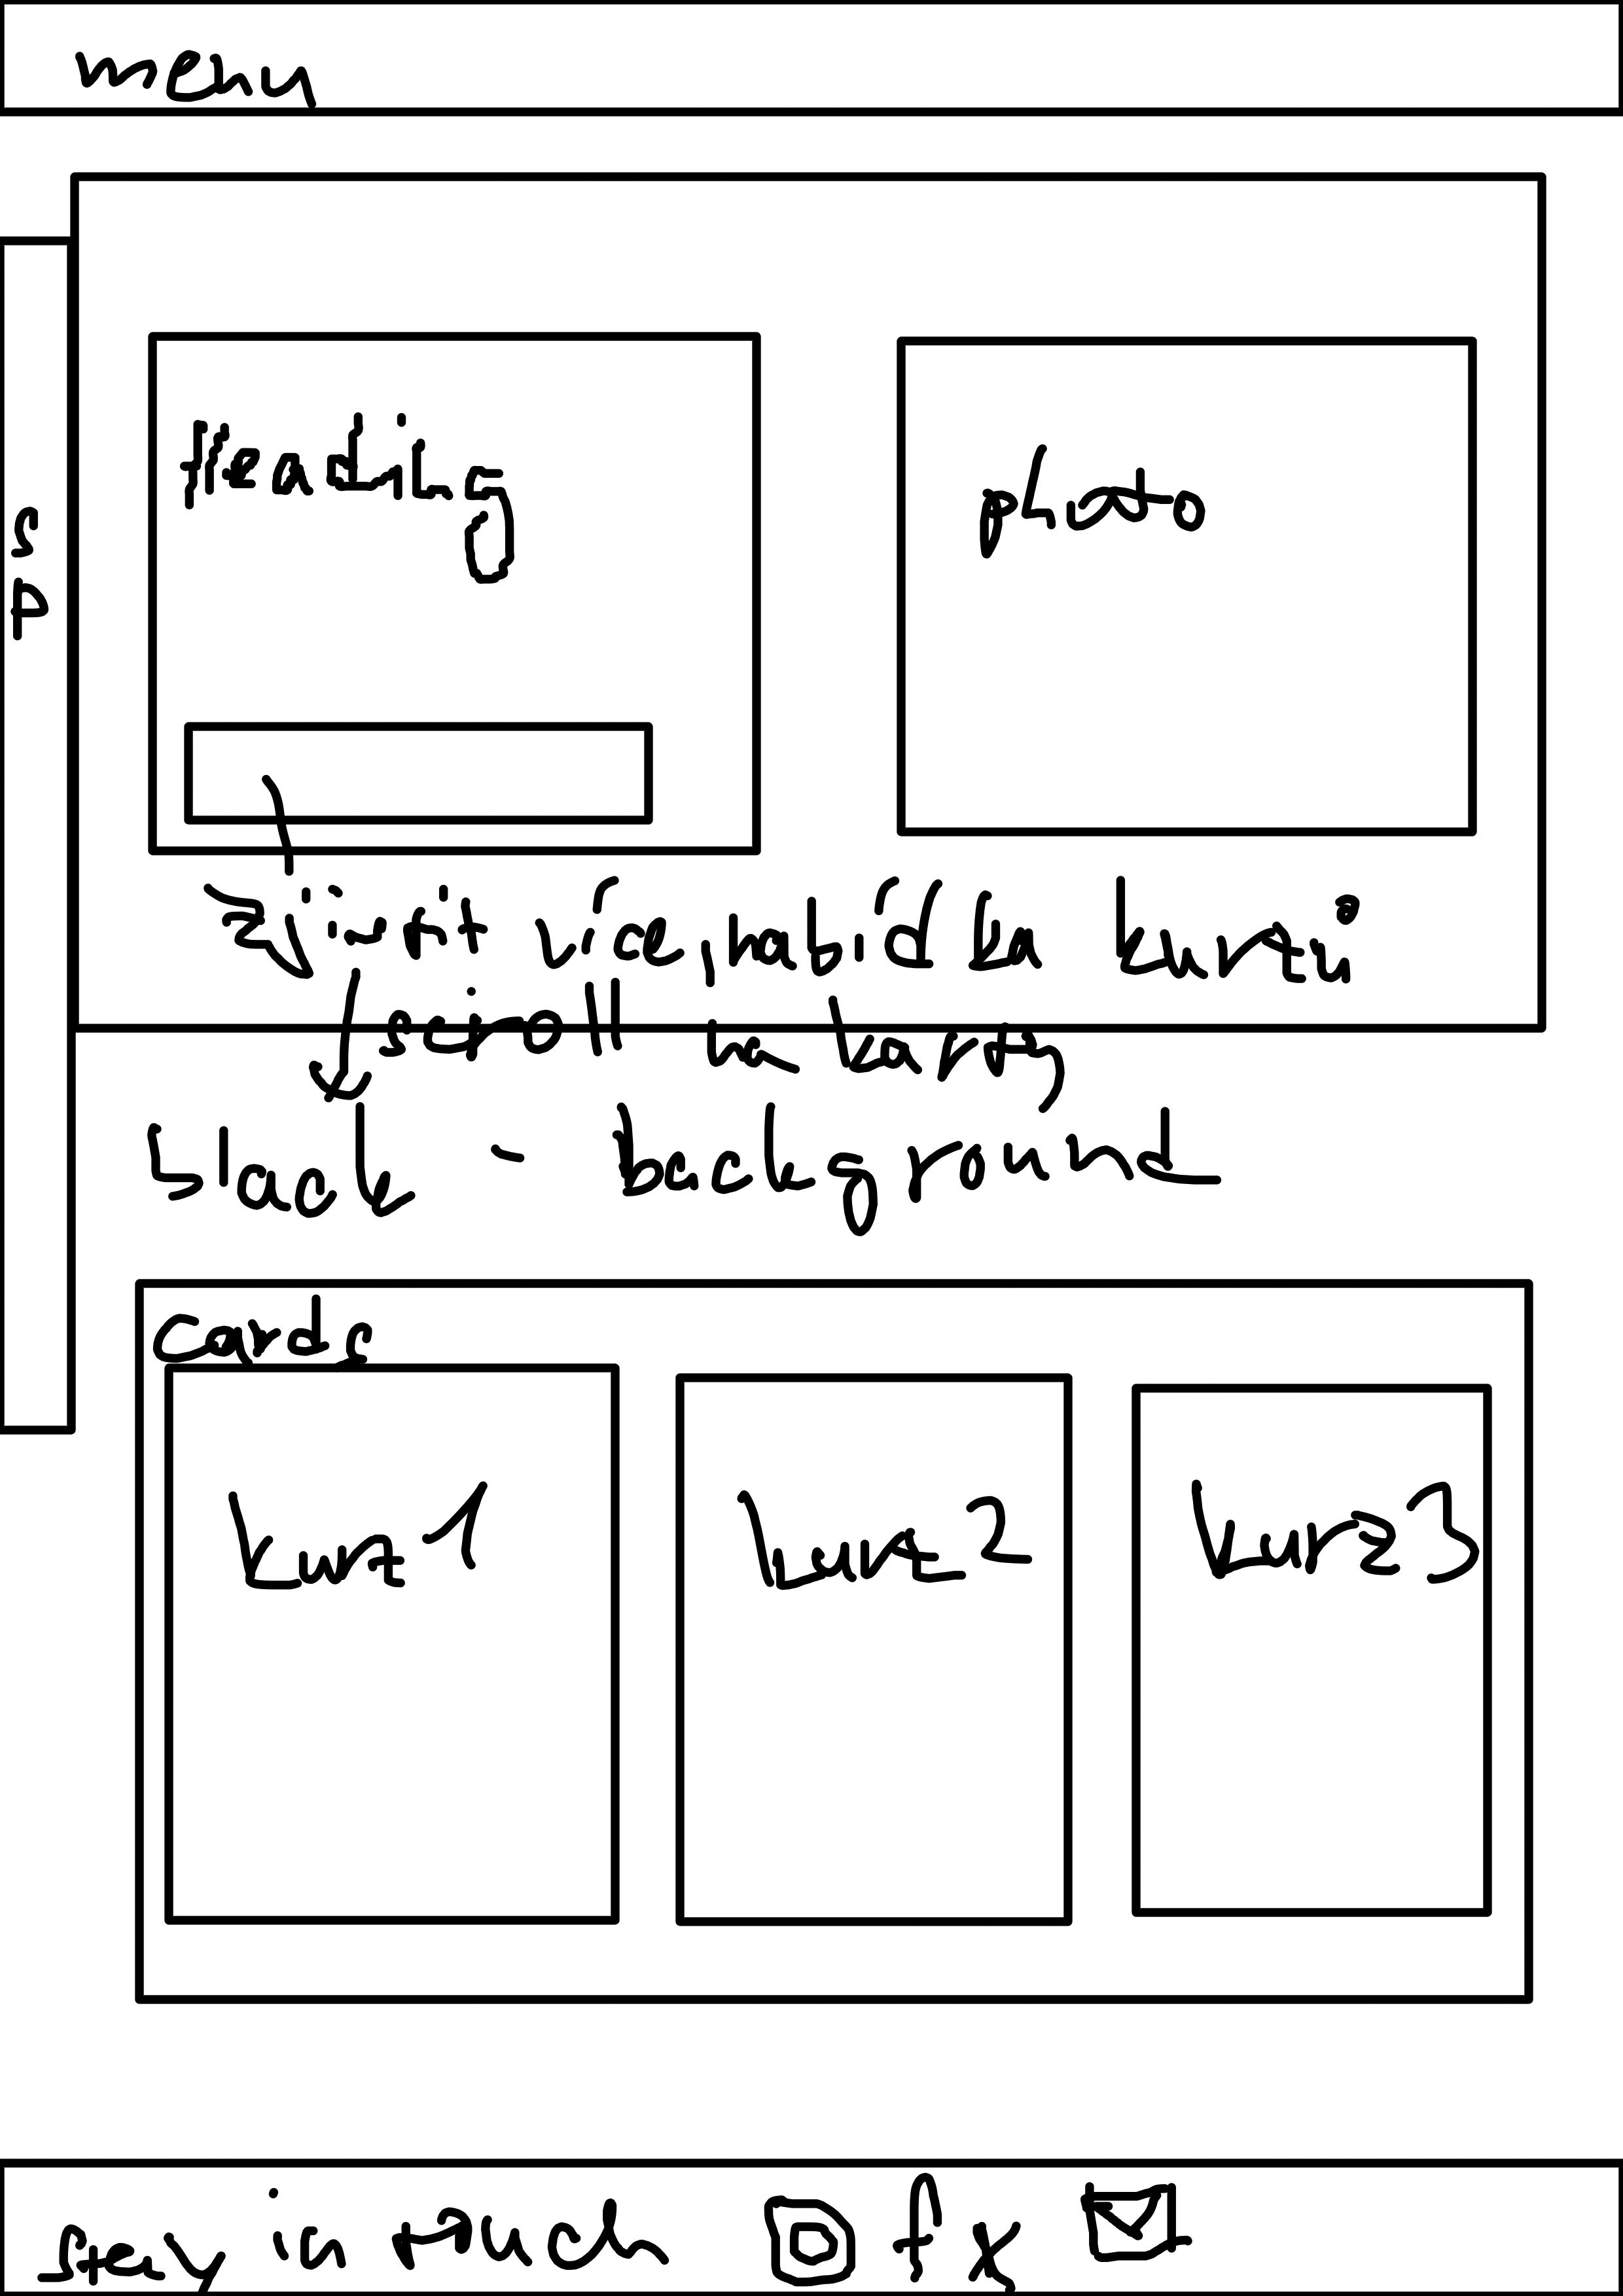 menu
s
p
Heading
photo
zjistit více, nabídka kurzů
scroll na karty
black - background
cards
kurz 1
kurz 2
kurz 3
stay in touch f x